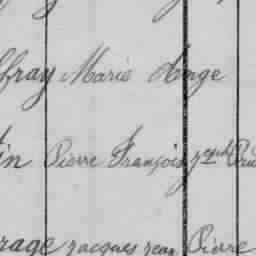 ffray Marie Ange
in Pierre François
rage Jacques Jean Pierre